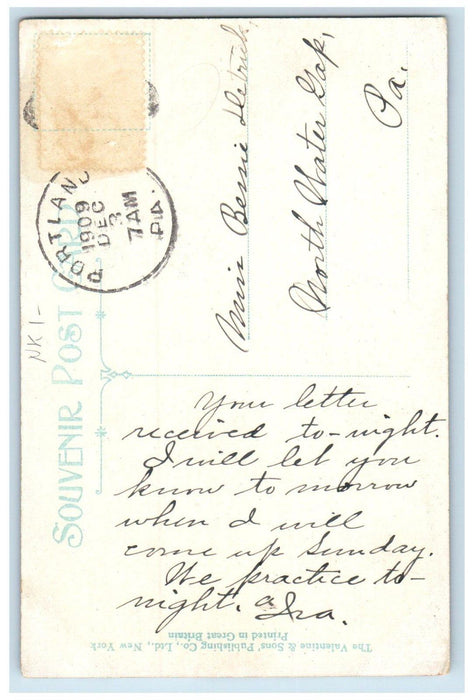 SOUVENIR POST CARD
PORTLAND
1909
DEC
3
7AM
PA.
NK1-
Miss Bessie Detrick
North Water Gap,
Pa.
Your letter
received to-night.
I will let you
know to morrow
when I will
come up Sunday.
We practice to-
night. Ira.
The Valentine & Sons' Publishing Co., Ltd., New York
Printed in Great Britain